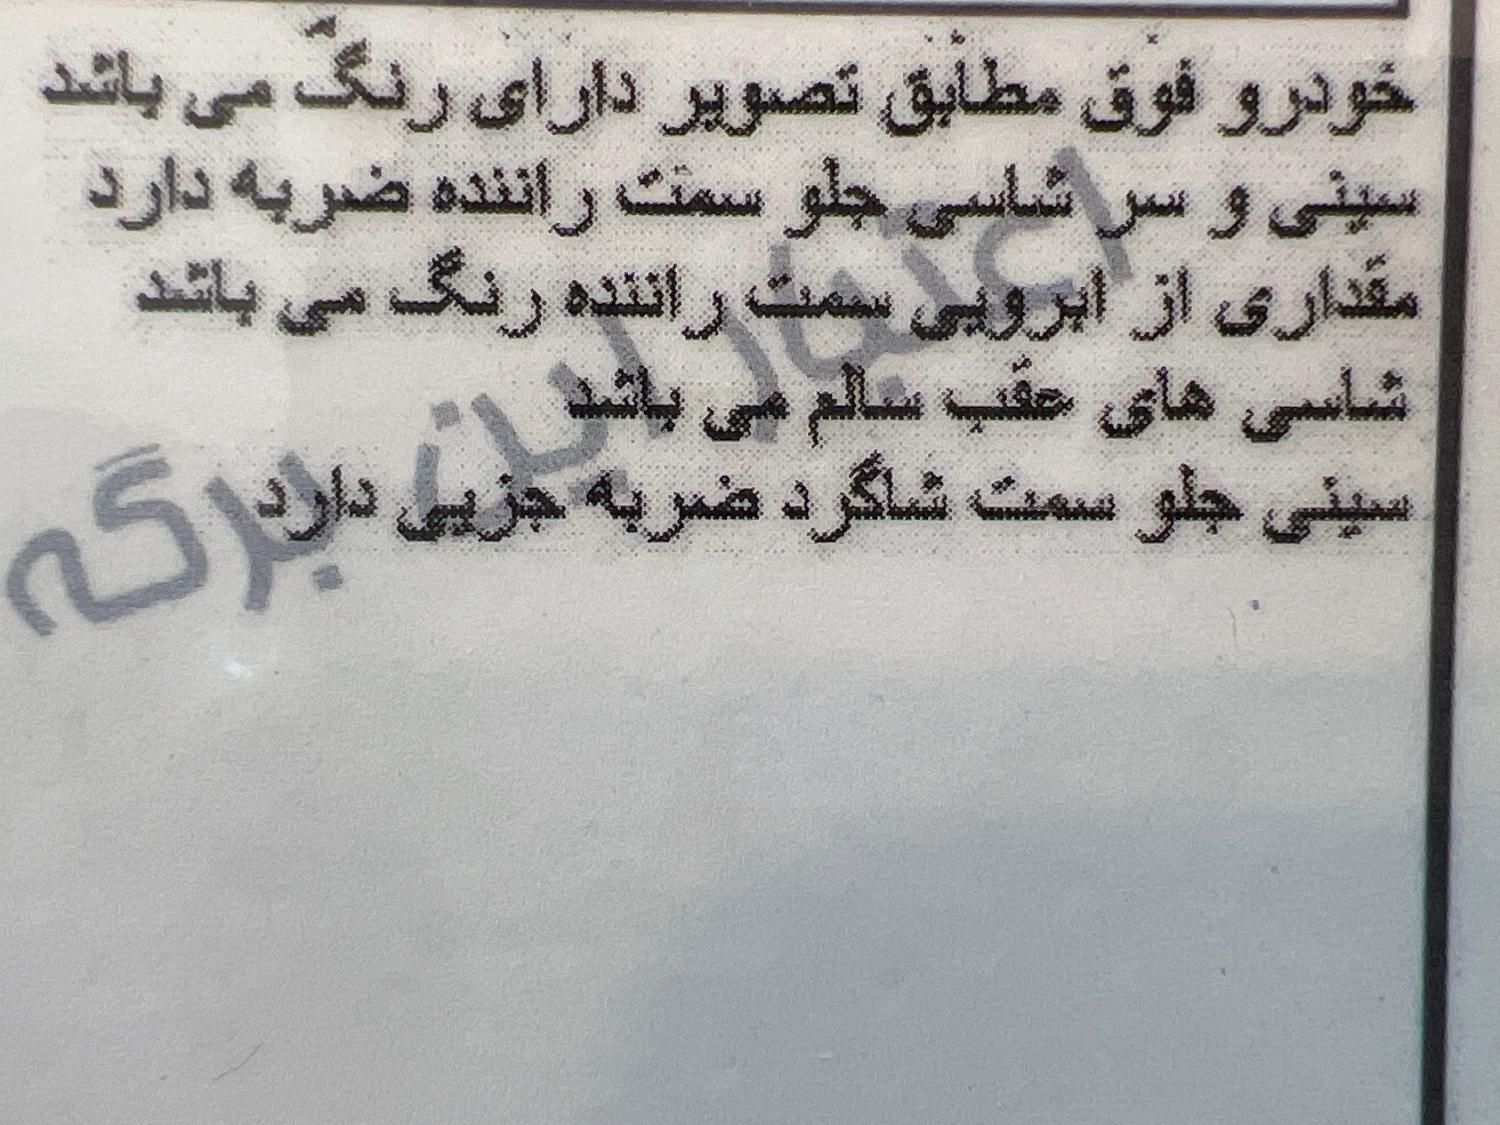 خودرو فوق مطابق تصویر دارای رنگ می باشد
سینی و سر شاسی جلو سمت راننده ضربه دارد
مقداری از ابرویی سمت راننده رنگ می باشد
شاسی های عقب سالم می باشد
سینی جلو سمت شاگرد ضربه جزیی دارد
اعتبار این برگه